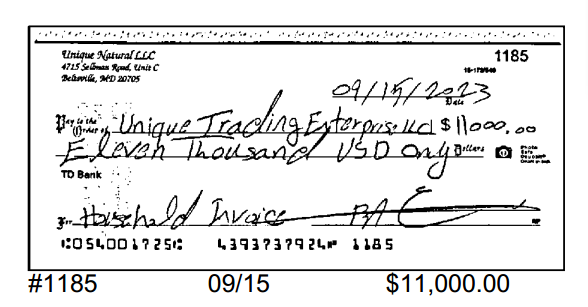 Unique Natural LLC
1185
4715 Sellman Road, Unit C
Beltsville, MD 20705
09/15/2023
Date
Pay to the
Order of Unique Trading Enterprise LLC $11000.00
Eleven Thousand USD Only Dollars
Photo
Safe
Deposit
TD Bank
For Household Invoice
⑆054001725⑆ 4393737924⑈ 1185
#1185 09/15 $11,000.00